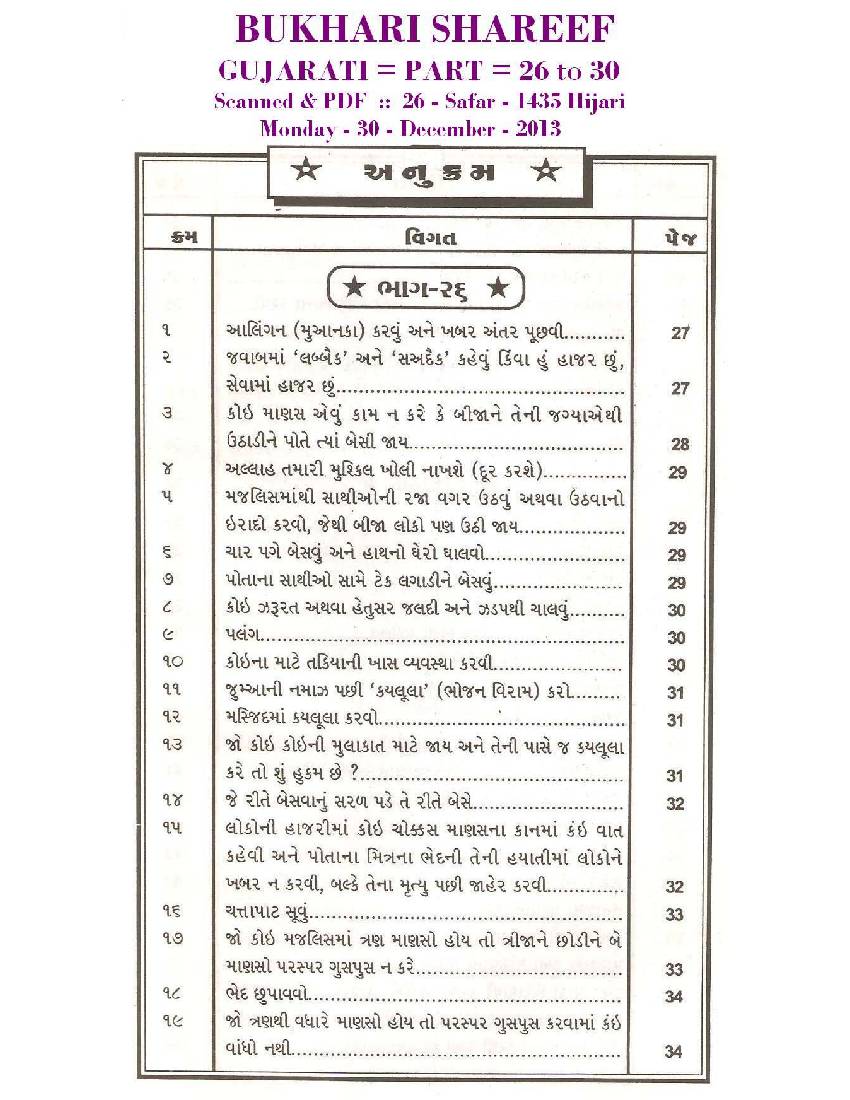 BUKHARI SHAREEF
GUJARATI = PART = 26 to 30
Scanned & PDF :: 26 - Safar - 1435 Hijari
Monday - 30 - December - 2013
☆ અનુક્રમ ☆
ક્રમ વિગત પેજ
★ ભાગ-૨૬ ★
૧ આલિંગન (મુઆનકા) કરવું અને ખબર અંતર પૂછવી........... 27
૨ જવાબમાં ‘લબ્બૈક’ અને ‘સઅદૈક’ કહેવું કિંવા હું હાજર છું,
સેવામાં હાજર છું.................................................... 27
૩ કોઇ માણસ એવું કામ ન કરે કે બીજાને તેની જગ્યાએથી
ઉઠાડીને પોતે ત્યાં બેસી જાય...................................... 28
૪ અલ્લાહ તમારી મુશ્કિલ ખોલી નાખશે (દૂર કરશે).............. 29
૫ મજલિસમાંથી સાથીઓની રજા વગર ઉઠવું અથવા ઉઠવાનો
ઇરાદો કરવો, જેથી બીજા લોકો પણ ઉઠી જાય................... 29
૬ ચાર પગે બેસવું અને હાથનો ઘેરો ઘાલવો......................... 29
૭ પોતાના સાથીઓ સામે ટેક લગાડીને બેસવું....................... 29
૮ કોઇ ઝરૂરત અથવા હેતુસર જલદી અને ઝડપથી ચાલવું......... 30
૯ પલંગ.................................................................. 30
૧૦ કોઇના માટે તકિયાની ખાસ વ્યવસ્થા કરવી....................... 30
૧૧ જુમ્આની નમાઝ પછી ‘કયલૂલા’ (ભોજન વિરામ) કરો......... 31
૧૨ મસ્જિદમાં કયલૂલા કરવો........................................... 31
૧૩ જો કોઇ કોઇની મુલાકાત માટે જાય અને તેની પાસે જ કયલૂલા
કરે તો શું હુકમ છે ?................................................ 31
૧૪ જે રીતે બેસવાનું સરળ પડે તે રીતે બેસે.......................... 32
૧૫ લોકોની હાજરીમાં કોઇ ચોક્કસ માણસના કાનમાં કંઇ વાત
કહેવી અને પોતાના મિત્રના ભેદની તેની હયાતીમાં લોકોને
ખબર ન કરવી, બલ્કે તેના મૃત્યુ પછી જાહેર કરવી.............. 32
૧૬ ચત્તાપાટ સૂવું........................................................ 33
૧૭ જો કોઇ મજલિસમાં ત્રણ માણસો હોય તો ત્રીજાને છોડીને બે
માણસો પરસ્પર ગુસપુસ ન કરે.................................... 33
૧૮ ભેદ છુપાવવો......................................................... 34
૧૯ જો ત્રણથી વધારે માણસો હોય તો પરસ્પર ગુસપુસ કરવામાં કંઇ
વાંધો નથી............................................................ 34